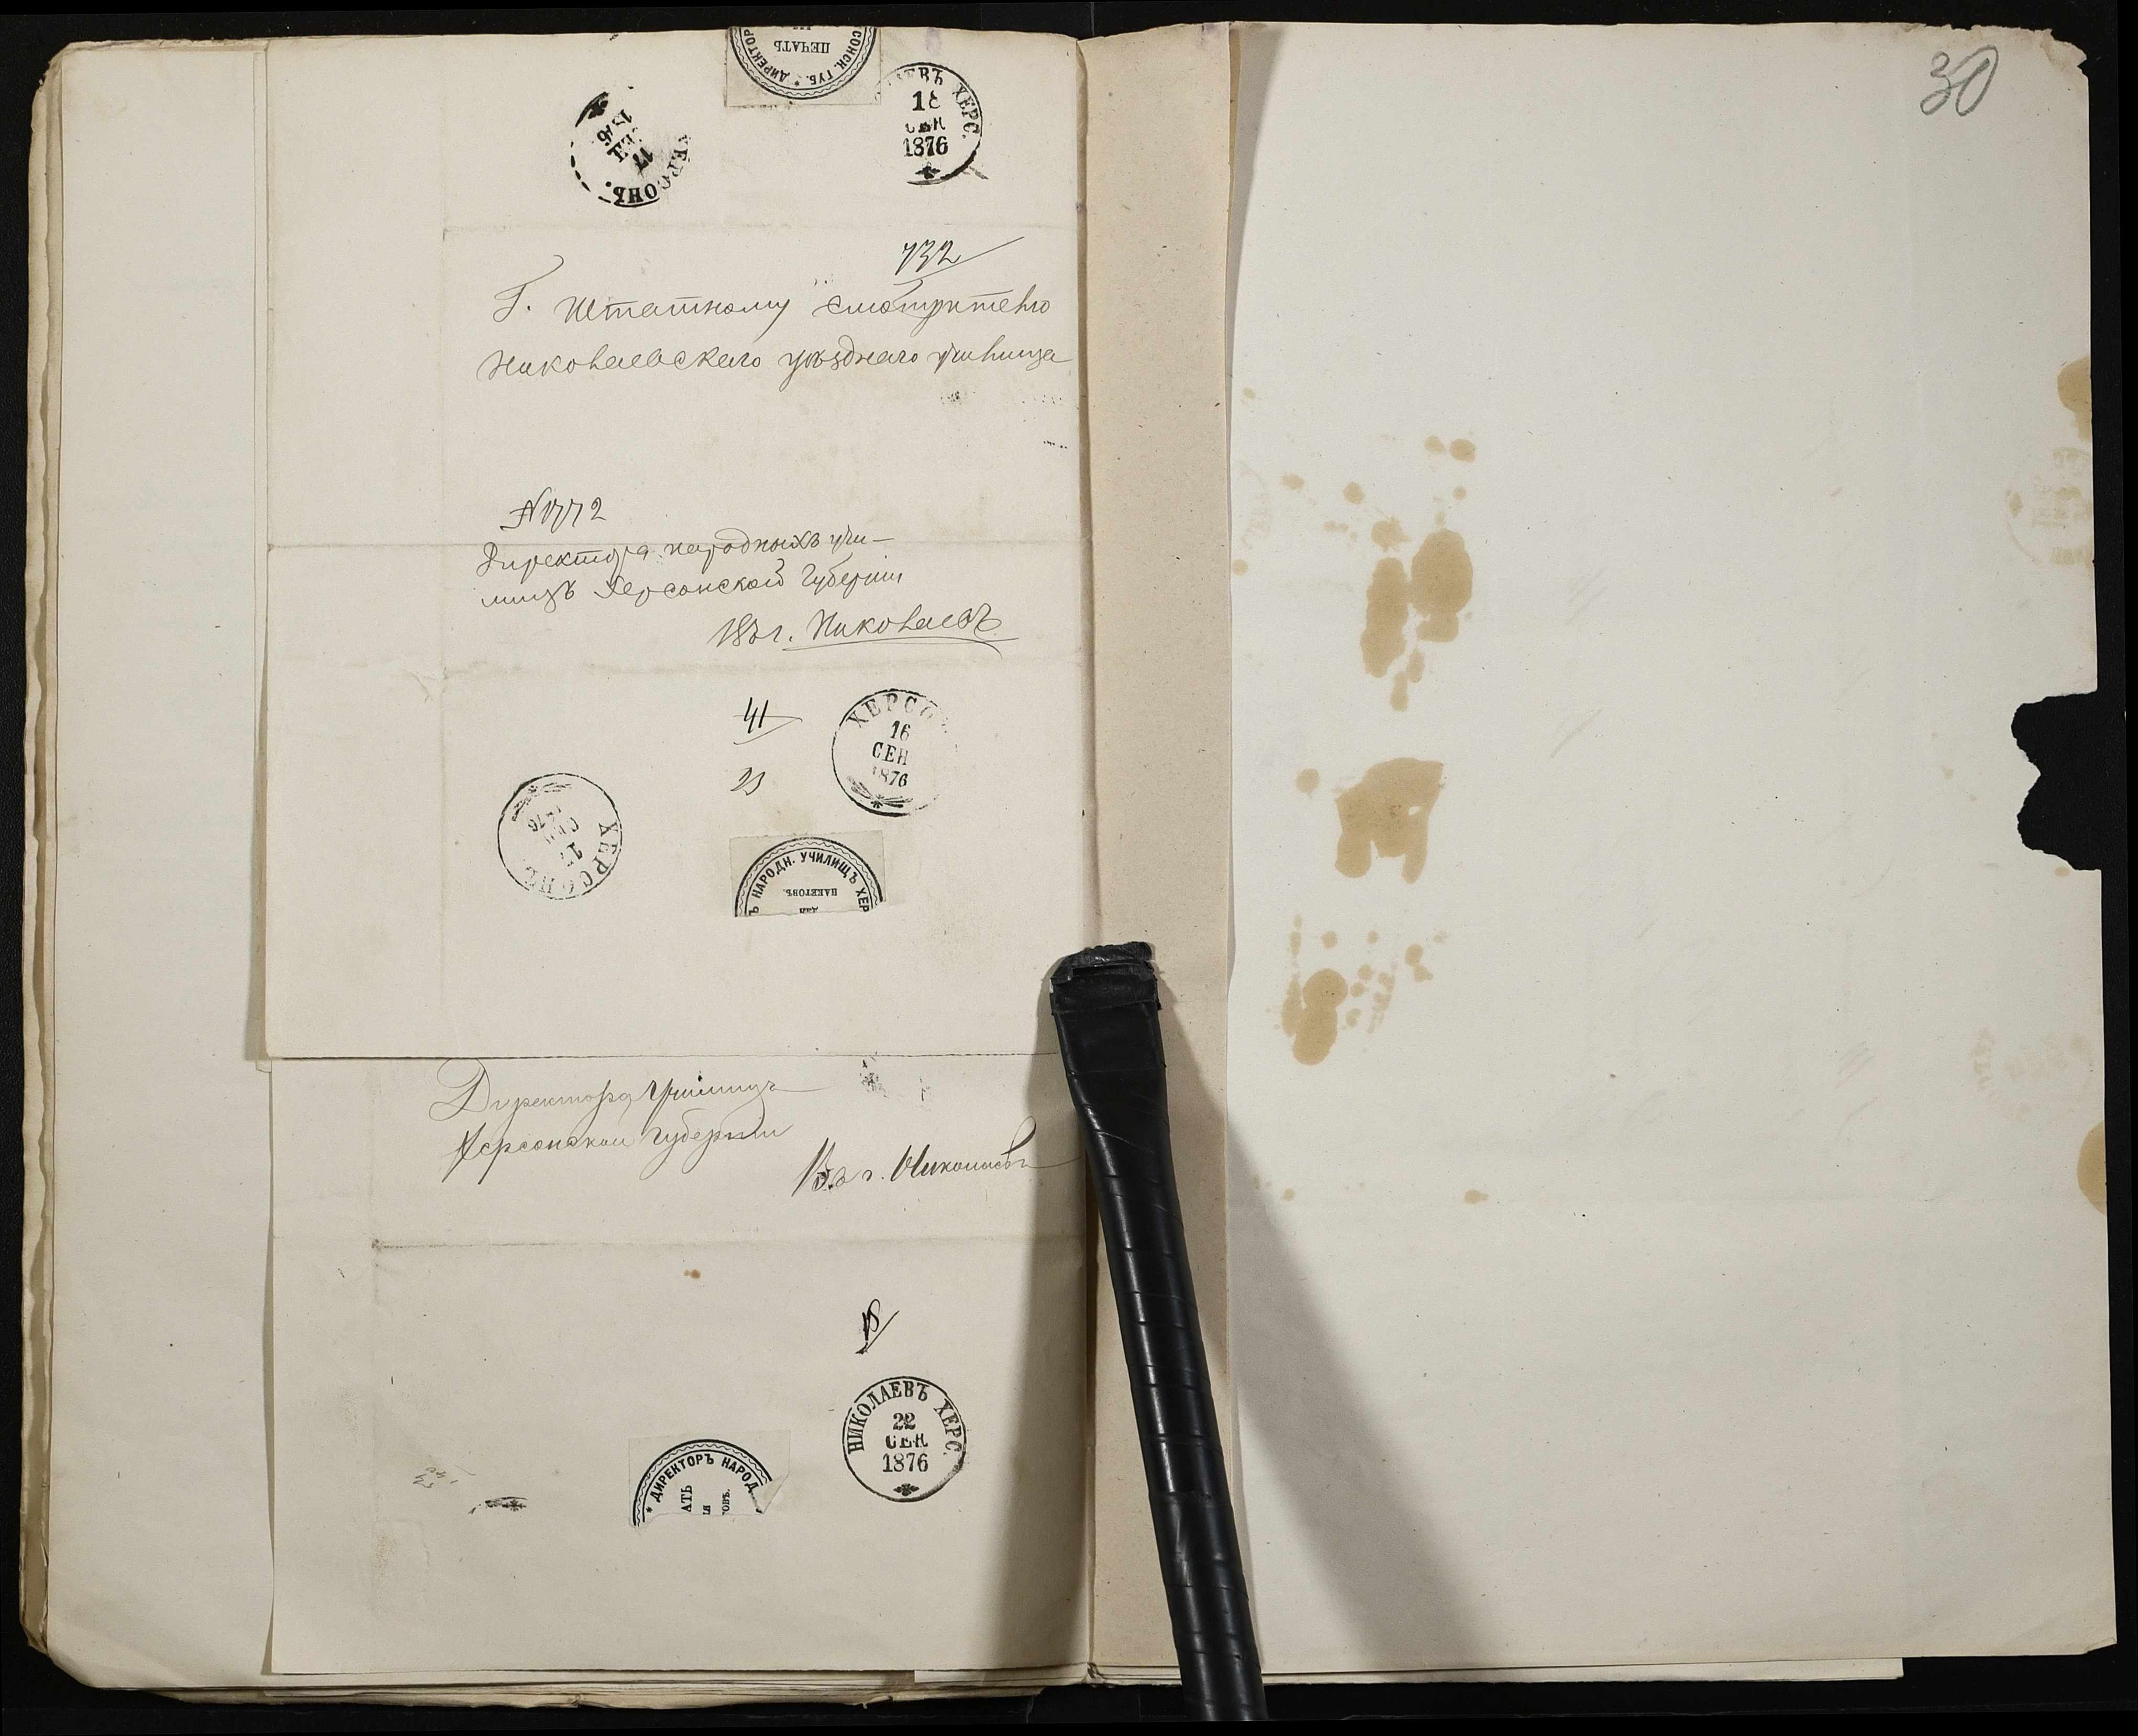 30
СОНСК. ГУБ. * ДИРЕКТОР
ПЕЧАТЬ
ХЕРСОНЪ.
17
1876
ЕВЪ ХЕРС.
18
СЕН
1876
732
Г. Штатному Смотрителю
Николаевскаго уѣзднаго училища
№ 1772
Директора народныхъ учи-
лищъ Херсонской Губерніи
Въ г. Николаевъ
41
23
ХЕРСО
16
СЕН
1876
ХЕРСОНЪ
1876
Ъ НАРОДН. УЧИЛИЩЪ ХЕР
ПАКЕТОВЪ.
ДЛЯ
Директора Училищъ
Херсонской губерніи
Въ г. Николаевъ
НИКОЛАЕВЪ ХЕРС.
22
СЕН
1876
* ДИРЕКТОРЪ НАРОД
АТЬ
ТОВЪ.